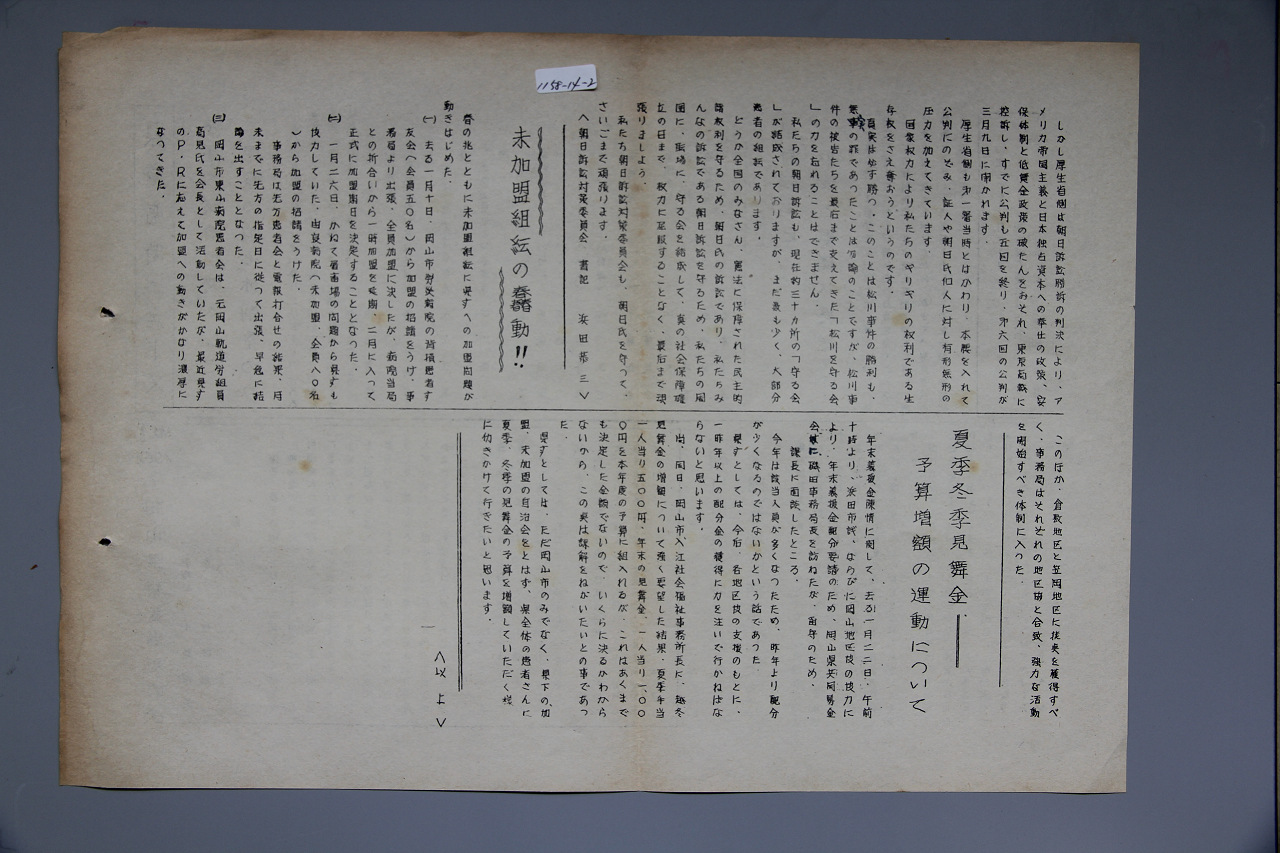 1158-14-2
しかし厚生省側は朝日訴訟勝訴の判決により、ア
メリカ帝国主義と日本独占資本への奉仕の政策、安
保体制と低賃金政策の破たんをおそれ、東京高裁に
控訴し、すでに公判も五回を終り、第六回の公判が
三月九日に開かれます。
厚生省側も第一審当時とはかわり、本腰を入れて
公判にのぞみ、証人や朝日氏個人に対し有形無形の
圧力を加えてきています。
国家权力により私たちのギリギリの权利である生
存权をさえ奪おうというのです。
真実は必ず勝つ・このことは松川事件の勝利も、
無事の罪であったことは勿論のことですが、松川事
件の被告たちを最后まで支えてきた「松川を守る会
」の力を忘れることはできません。
私たちの朝日訴訟も、現在約三十カ所の「守る会
」が結成されておりますが、まだ数も少く、大部分
患者の組織であります。
どうか全国のみなさん、憲法に保障された民主的
諸权利を守るため、朝日氏の訴訟であり、私たちみ
んなの訴訟である朝日訴訟を守るため、私たちの周
囲に、職場に、守る会を結成して、真の社会保障確
立の日まで、权力に屈服することなく、最后まで頑
張りましよう。
私たち朝日訴訟対策委員会も、朝日氏を守って、
さいごまで頑張ります。
＜朝日訴訟対策委員会 書記 浜田 ＞
未加盟組紜の蠢動!!
春の兆とともに未加盟組紜に県すへの加盟問題が
動きはじめた。
㈠ 去る一月十日、岡山市労災病院の脊損患者す
友会＜会員五〇名＞から加盟の招請をうけ、事
務局より出張、全員加盟に決したが、病院当局
との折合いから一時加盟を延期、二月に入って
正式に加盟期日を決定することとなった。
㈡ 一月二六日、かねて屠畜場の問題から県すも
協力していた、由良病院＜未加盟、会員八〇名
＞から加盟の招請をうけた。
事務局は先方患者会と電報打合せの結果、月
末までに先方の指定日に従って出張、早急に結
論を出すこととなつた。
㈢ 岡山市東山病院患者会は、元岡山軌道労組員
高見氏を会長として活動していたが、最近県す
のP・Rに応えて加盟への動きがかなり濃厚に
なつてきた。
このほか、倉敷地区と笠岡地区に従来を獲得すべ
く、事務局はそれぞれの地区協と合致、強力な活動
を開始すべき体制に入つた。
夏季冬季見舞金.
予算増額の運動について
年末義援金陳情に関して、去る一月二二日、午前
十時より、浜田市議、ならびに岡山地区協の協力に
より、年末義援金配分要請のため、岡山県共同募金
会に磯田事務局長を訪ねたが、函年のため、
課長に面談したところ、
今年は該当人員が多くなつたため、昨年より配分
が少くなるのではないかという話であつた。
県すとしては、今后、各地区協の支援のもとに、
一昨年以上の配分金の獲得に力を注いで行かねばな
らないと思います。
尚、同日、岡山市入江社会福祉事務所長に、越冬
見舞金の増額について強く要望した結果、夏季手当
一人当り五〇〇円、年末の見舞金、一人当り一、〇〇
〇円を本年度の予算に組入れるが、これはあくまで
も決定した金額でないので、いくらに決るかわから
ないから、この奌は諒解をねがいたいとの事であつ
た。
県すとしては、ただ岡山市のみでなく、県下の加
盟、未加盟の自治会をとはず、県全体の患者さんに
夏季、冬季の見舞金の予算を増額していただく様
に仂きかけて行きたいと思います。
＜以上＞